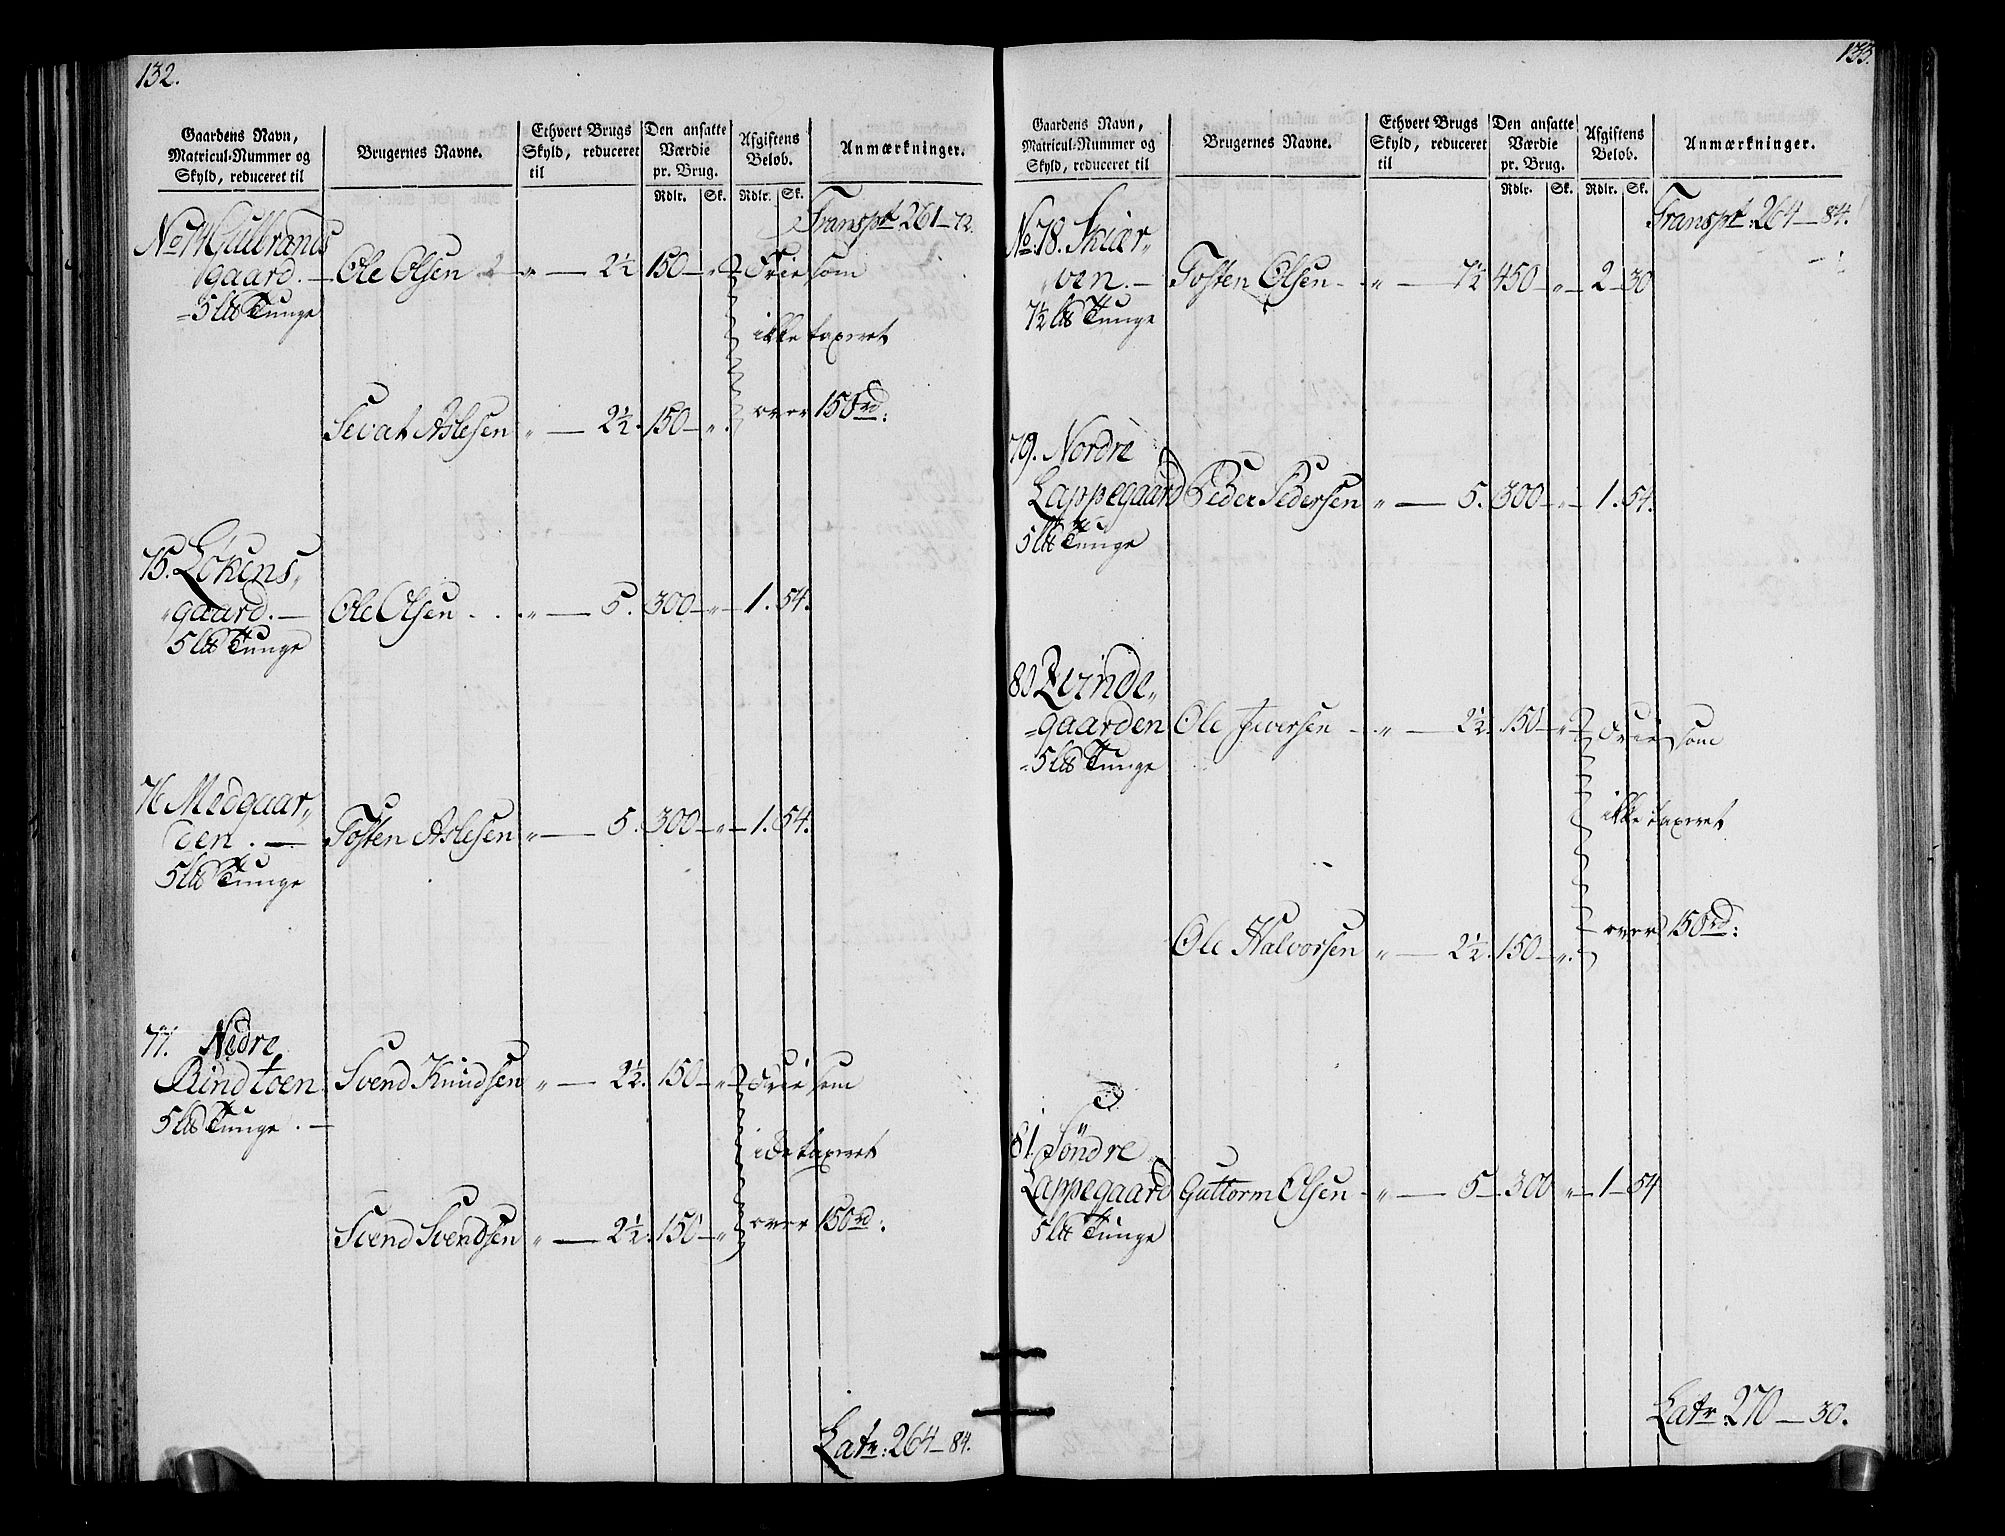 132.
Gaardens Navn, Matricul-Nummer og Skyld, reduceret til
Brugernes Navne.
Ethvert Brugs Skyld, reduceret til
Den ansatte Værdie pr. Brug.
Afgiftens Beløb.
Anmærkninger.
Rdlr. Sk. Rdlr. Sk.
Transpt 261 — 72.
No 74 Gulbrands
gaard. — Ole Olsen " — 2½ 150 — " Frie som
5 lb Tunge
ikke taxeret
over 150 rd:
Sevat Aslesen " — 2½. 150 — ".
75. Løkens
gaard. — Ole Olsen . . " — 5. 300 — " — 1. 54.
5 lb Tunge
76 Medgaar
den. — Tosten Aslesen " — 5. 300 — " — 1. 54.
5 lb Tunge
77. Nedre
Rindtoen Svend Knudsen " — 2½. 150 — " Frie som
5 lb Tunge . —
ikke taxeret
Svend Svendsen " — 2½. 150 — " over 150 rd:
Latr: 264 — 84.
133.
Gaardens Navn, Matricul-Nummer og Skyld, reduceret til
Brugernes Navne.
Ethvert Brugs Skyld, reduceret til
Den ansatte Værdie pr. Brug.
Afgiftens Beløb.
Anmærkninger.
Rdlr. Sk. Rdlr. Sk.
Transpt: 264 — 84.
No 78. Skiær
ven. — Tosten Olsen — " — 7½ 450 — " — 2 — 30
7½ lb Tunge
79. Nordre
Lappegaard Peder Pedersen " — 5. 300 — " — 1. 54.
5 lb Tunge
80 Qvinde
gaarden Ole Iversen — " — 2½. 150 — " Frie som
5 lb Tunge
ikke taxeret
over 150 rd:
Ole Halvorsen " — 2½. 150 — ".
81. Söndre
Lappegaard Guttorm Olsen — " — 5 — 300 " — 1 — 54
5 lb Tunge
Latr: 270 — 30.